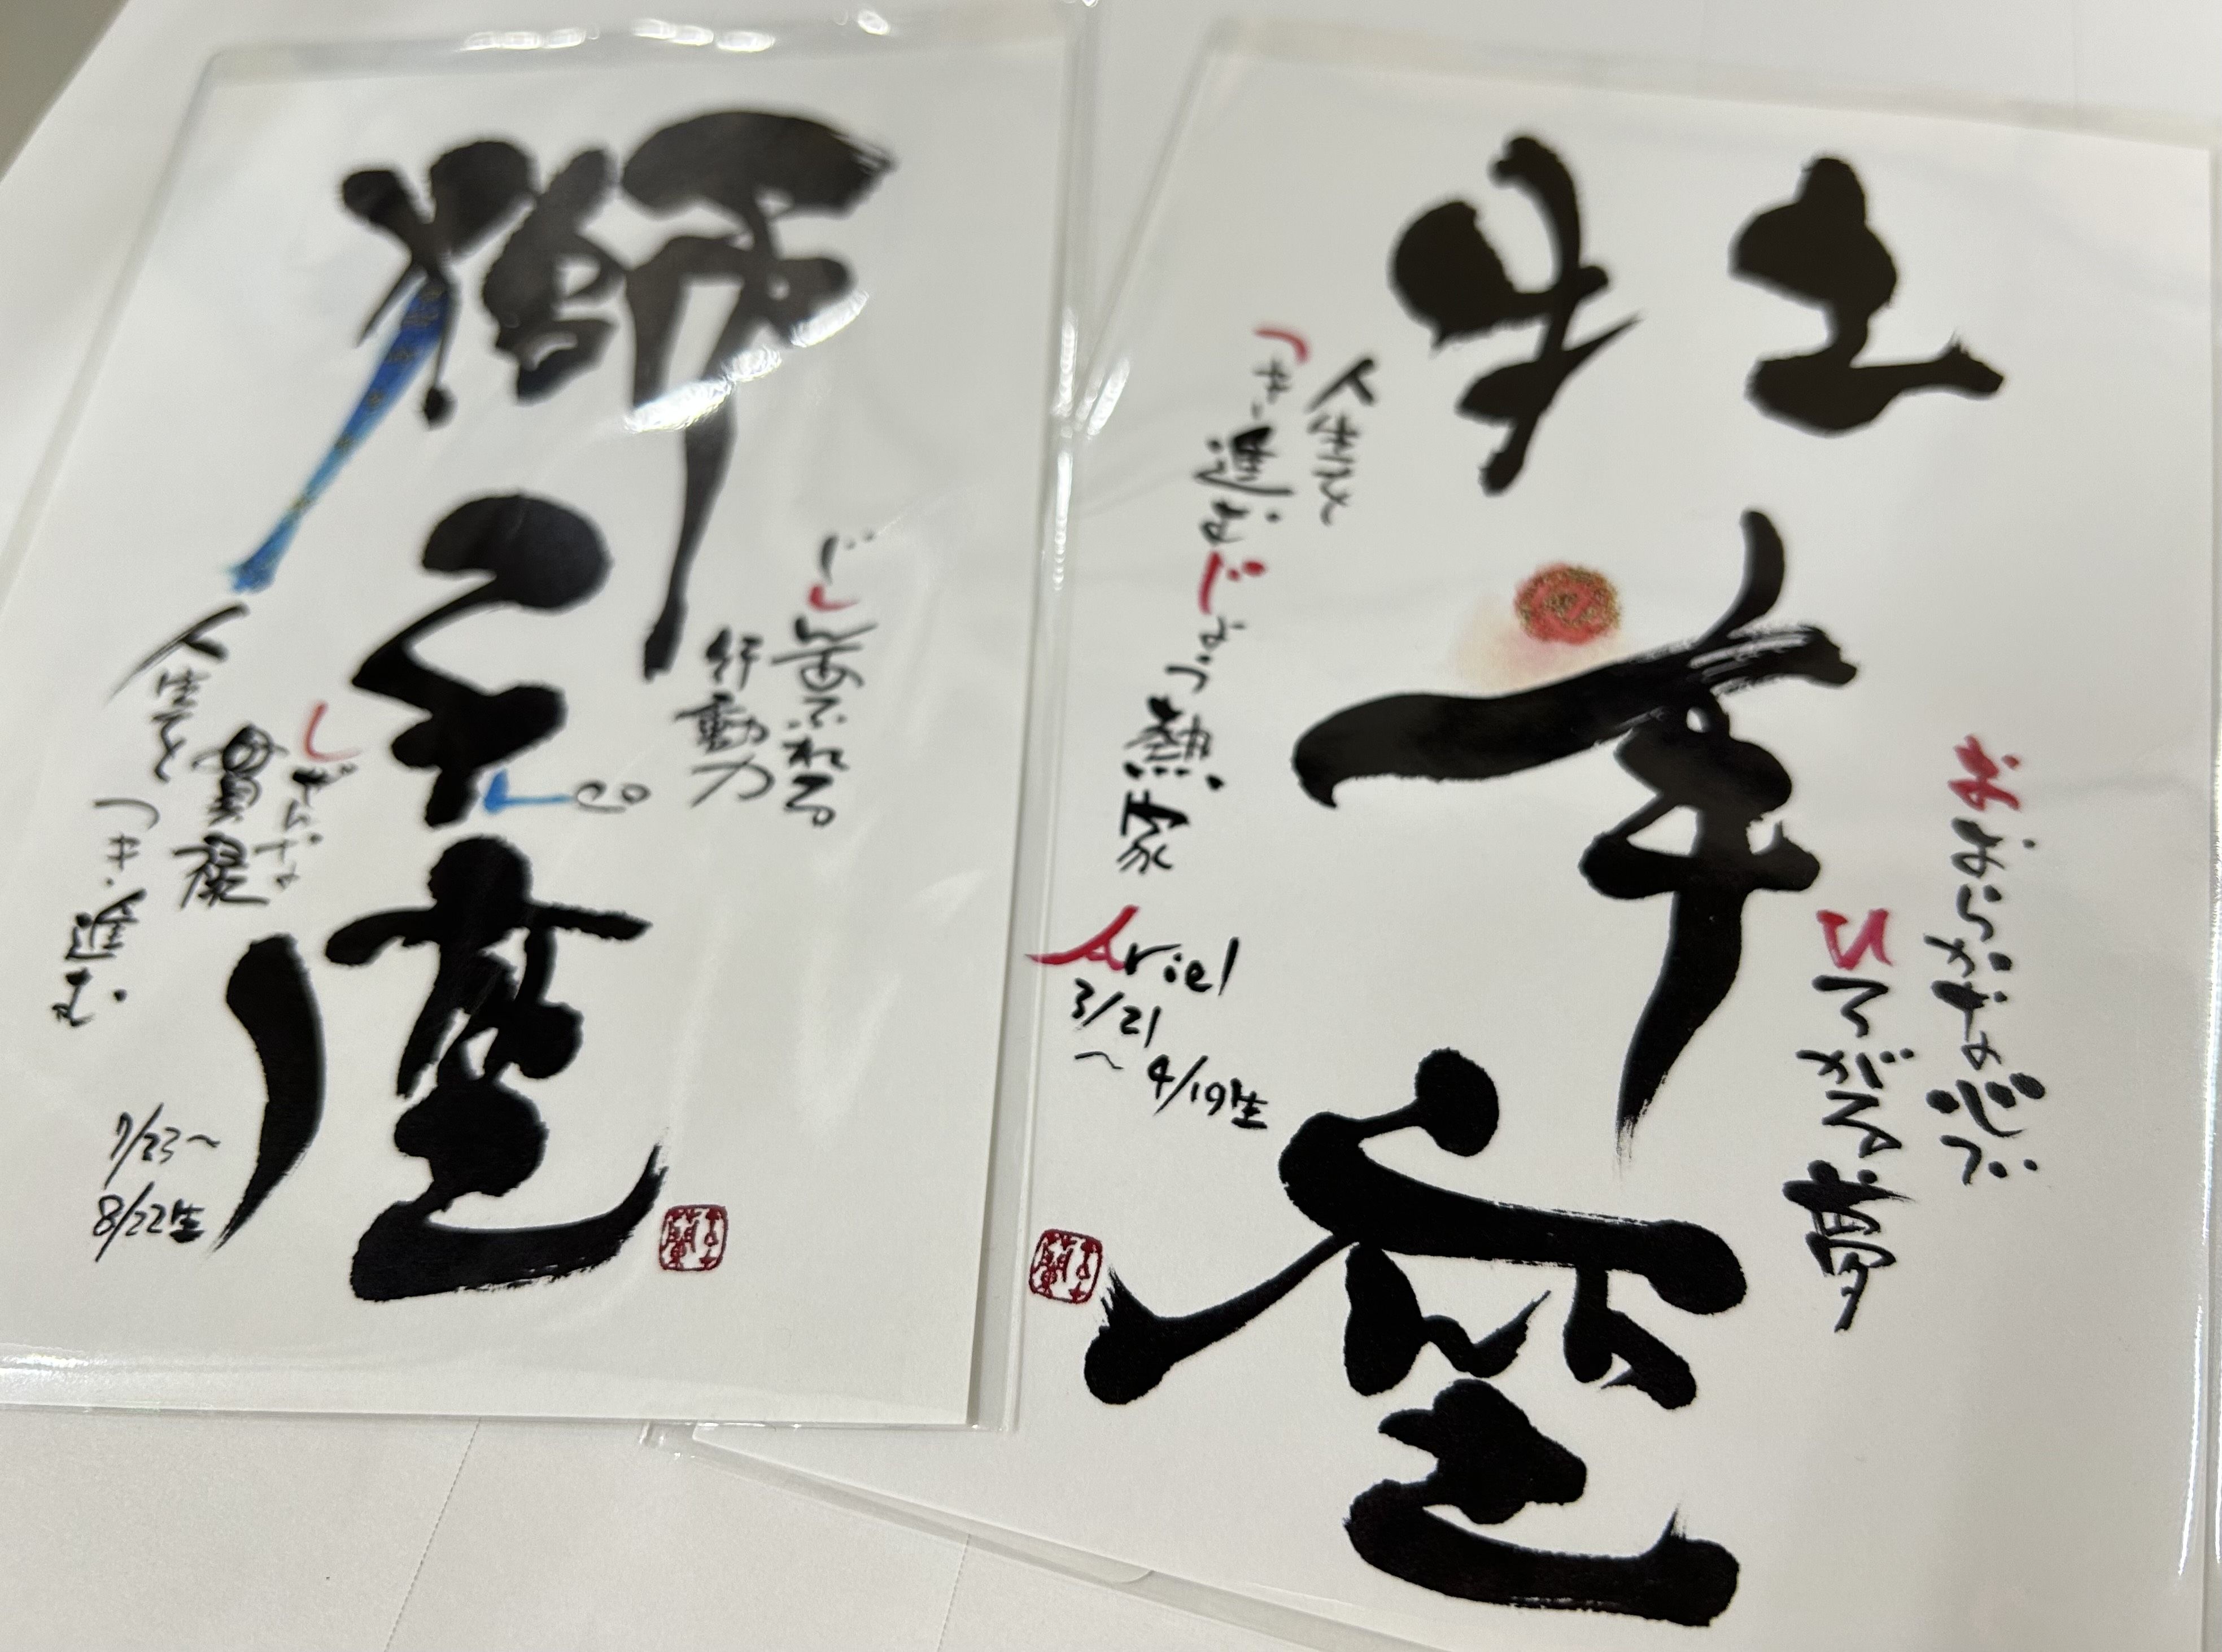 獅子座
じしんあふれる
行動力
Leo
しぜんな
貫禄
人生を
つき進む
7/23〜
8/22生
牡羊座
おおらかな心で
ひろがる夢
人生を
つき進むじょう熱家
Ariel
3/21
〜4/19生